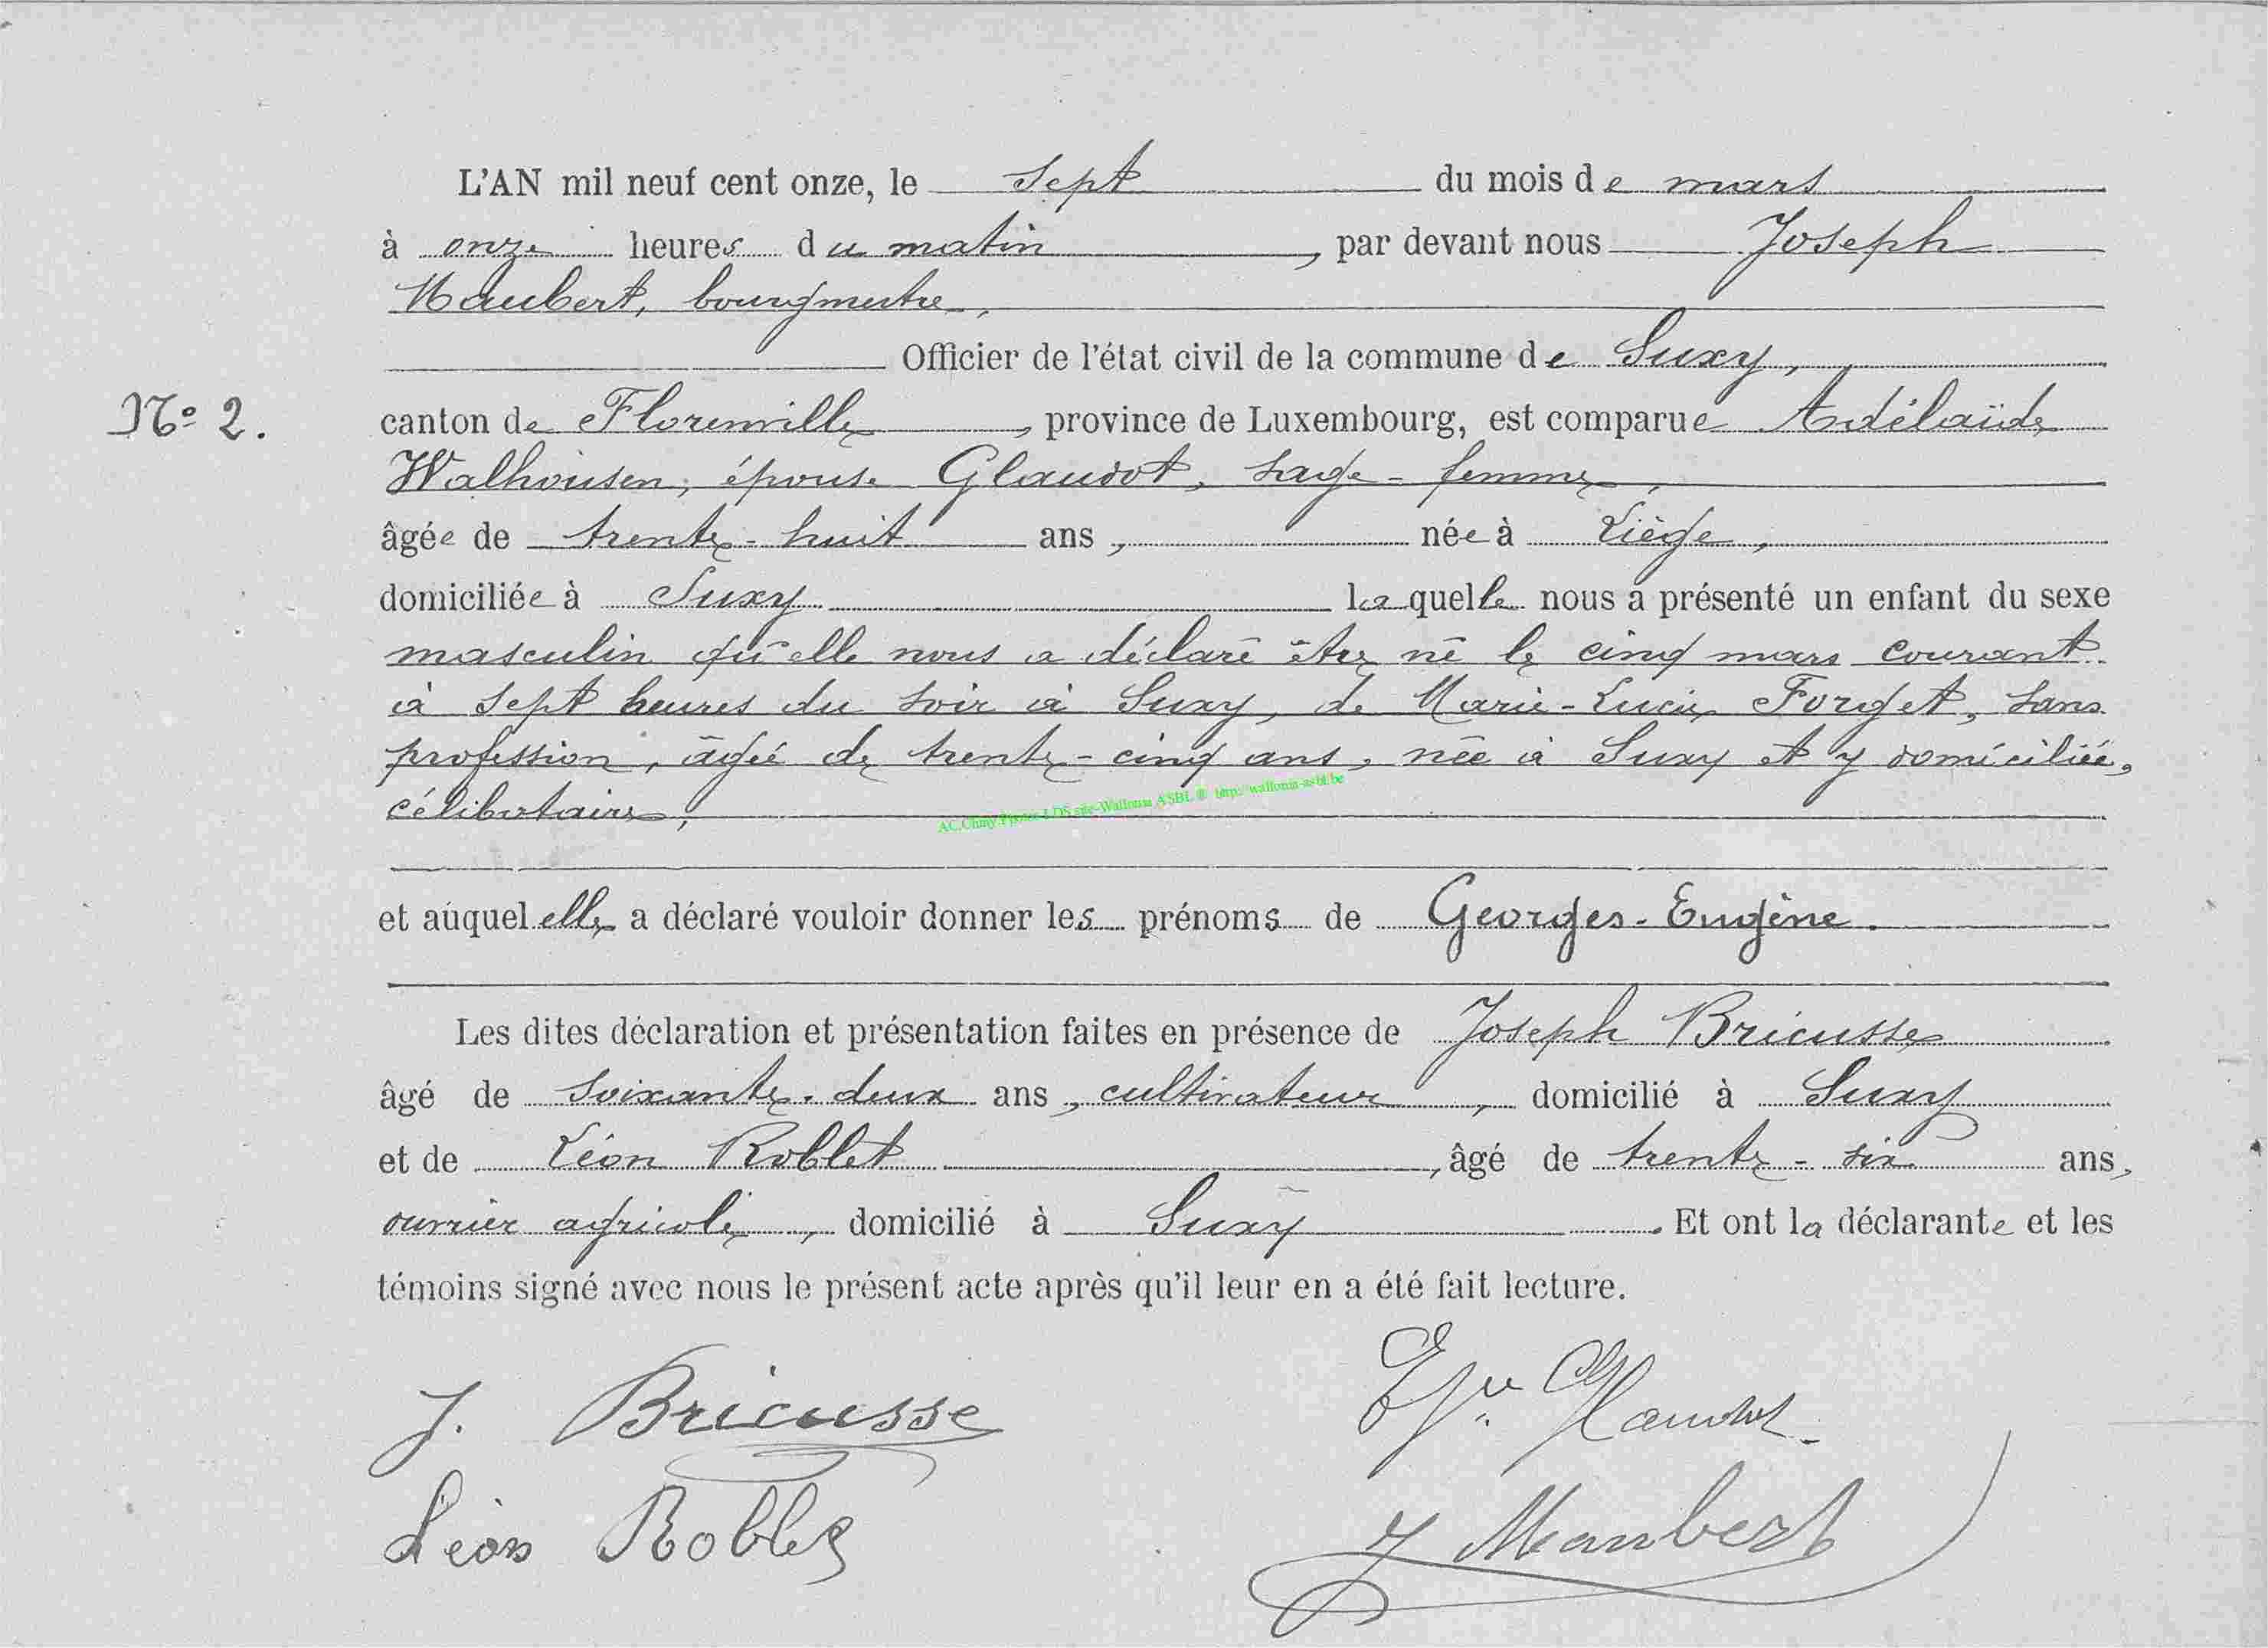 L'AN mil neuf cent onze, le sept du mois de mars
à onze heures du matin, par devant nous Joseph
Maubert, bourgmestre,
Officier de l'état civil de la commune de Suxy,
Nº 2.
canton de Florenville, province de Luxembourg, est comparue Andélaïde
Walhousen, épouse Glaudot, sage-femme,
âgée de trente-huit ans, née à Liège,
domiciliée à Suxy laquelle nous a présenté un enfant du sexe
masculin qu'elle nous a déclaré être né le cinq mars courant
à sept heures du soir à Suxy, de Marie-Lucie Forget, sans
profession, âgée de trente-cinq ans, née à Suxy et y domiciliée,
célibataire,
AC.Chiny.Photos LDS site-Wallonia ASBL ® http://wallonia-asbl.be
et auquel elle a déclaré vouloir donner les prénoms de Georges-Eugène.
Les dites déclaration et présentation faites en présence de Joseph Bricusse
âgé de soixante-deux ans, cultivateur, domicilié à Suxy
et de Léon Roblet, âgé de trente-six ans,
ouvrier agricole, domicilié à Suxy. Et ont la déclarante et les
témoins signé avec nous le présent acte après qu'il leur en a été fait lecture.
J. Bricusse
Glaudot
Léon Roblet
J Maubert